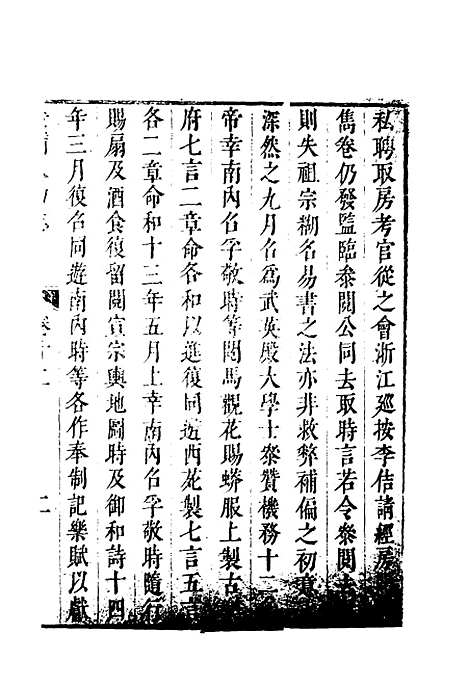 私聘取房考官從之會浙江廵按李佶請經房
雋卷仍發監臨叅閱公同去取時言若令叅閱
則失祖宗糊名易書之法亦非救弊補偏之初
深然之九月名爲武英殿大學士叅贊機務十二
帝幸南內名孚敬時等閱馬觀花賜蟒服上製古
府七言二章命各和以進復同遊西苑製七言五言
各二章命和十三年五月上幸南內名孚敬時隨行
賜扇及酒食復留閱宣宗輿地圖時及御和詩十四
年三月復名同遊南內時等各作奉制記樂賦以獻
二